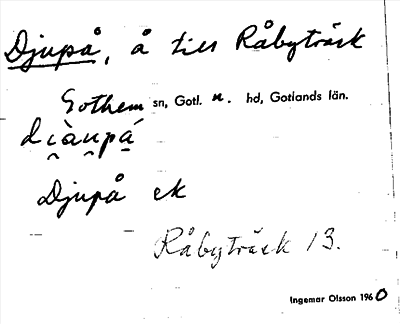 Djupå, å till Råbyträsk
Gothem sn, Gotl. n. hd, Gotlands län.
Djupå ek
Råbyträsk 13.
Ingemar Olsson 1960